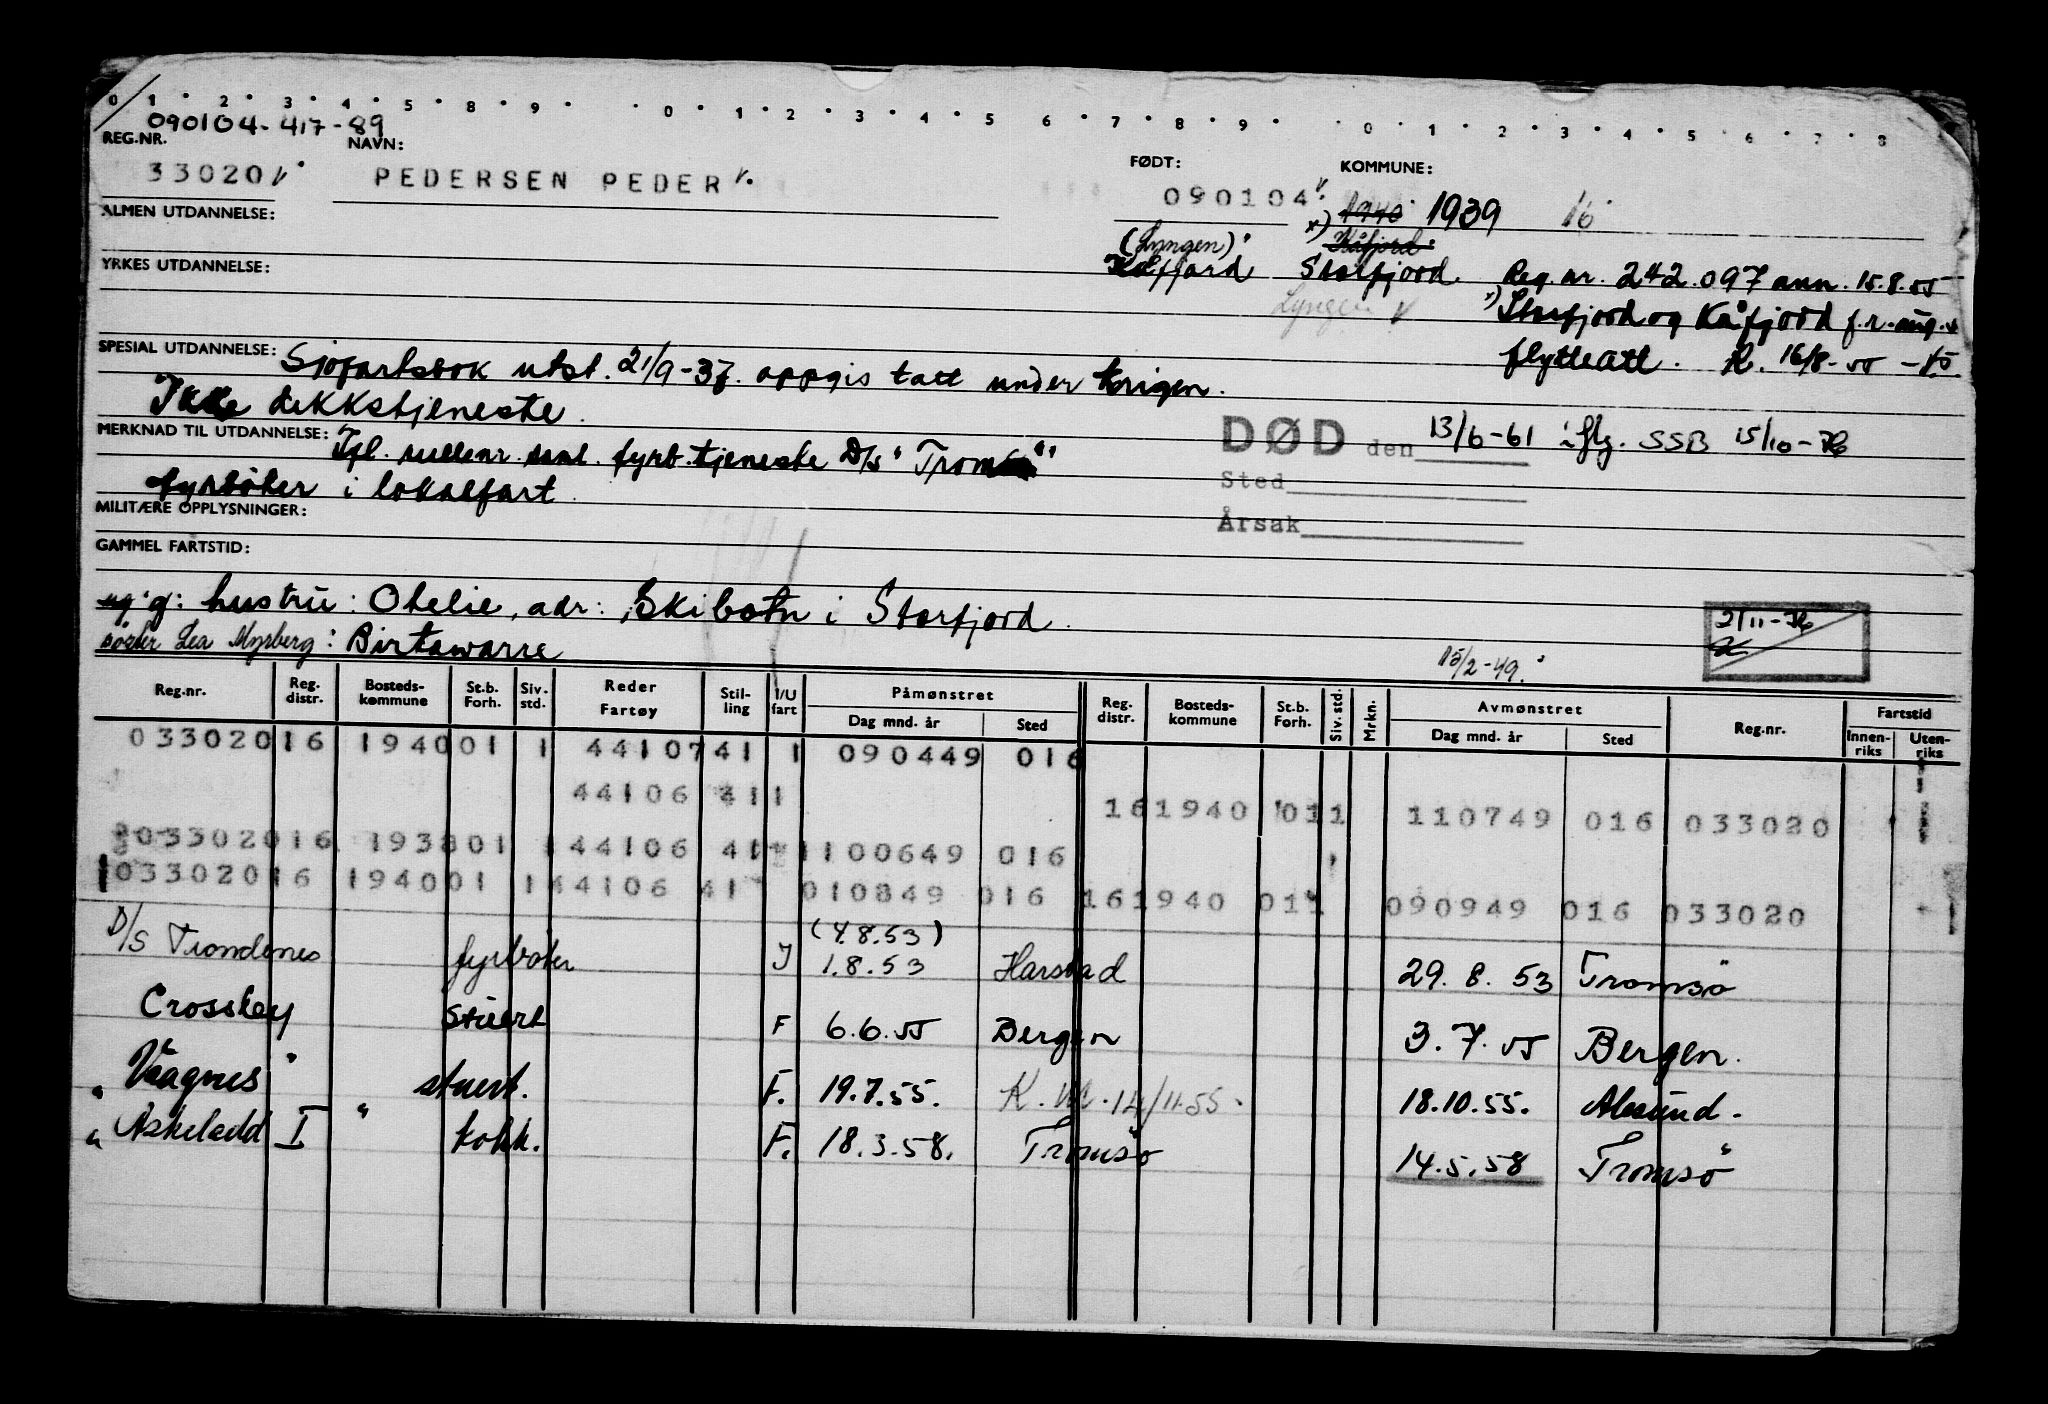 0 1 2 3 4 5 8 9 0 1 2 3 4 5 6 7 8 9 0 1 2 3 4 5 6 7 8
090104-417-89
REG.NR. NAVN: FØDT: KOMMUNE:
33020 PEDERSEN PEDER 090104 1940 1939 16
ALMEN UTDANNELSE:
(Lyngen) Kåfjord
Kåfjord Storfjord Reg.nr. 242.097 ann. 15.8.55
YRKES UTDANNELSE:
Lyngen x) Storfjord og Kåfjord f.r. aug.
flytteatt. 16/8-55
SPESIAL UTDANNELSE: Sjøfartsbok utst. 21/9-37. oppgis tatt under krigen.
Ikke dekkstjeneste.
DØD den 13/6-61 iflg. SSB 15/10-76
MERKNAD TIL UTDANNELSE: fyrb.tjeneste D/S "
fyrbøter i lokalfart
Sted
MILITÆRE OPPLYSNINGER:
Årsak
GAMMEL FARTSTID:
g: hustru: Otelie, adr: Skibotn i Storfjord.
2/11-76
søster Lea Myrberg: Birtawarre
15/2-49.
Reg.nr. Reg. distr. Bosteds- kommune St.b. Forh. Siv. std. Reder Fartøy Stil- ling I/U fart Påmønstret Dag mnd. år Sted Reg. distr. Bosteds- kommune St.b. Forh. Siv. std. Mrkn. Avmønstret Dag mnd. år Sted Reg.nr. Fartstid Innen- riks Uten- riks
033020 16 1940 01 1 44107 41 1 090449 016
44106 411 16 1940 011 110749 016 033020
033020 16 193801 1 44106 41 100649 016
033020 16 1940 01 1 44106 41 010849 016 16 1940 011 090949 016 033020
(4.8.53)
D/S Trondenes fyrbøter I 1.8.53 Harstad 29.8.53 Tromsø
Crossley stuert F 6.6.55 Bergen 3.7.55 Bergen.
" Vaagnes " stuert. F. 19.7.55. K. 14/11.55. 18.10.55. Ålesund.
" Askeladd I " kokk. F. 18.3.58. Tromsø 14.5.58 Tromsø